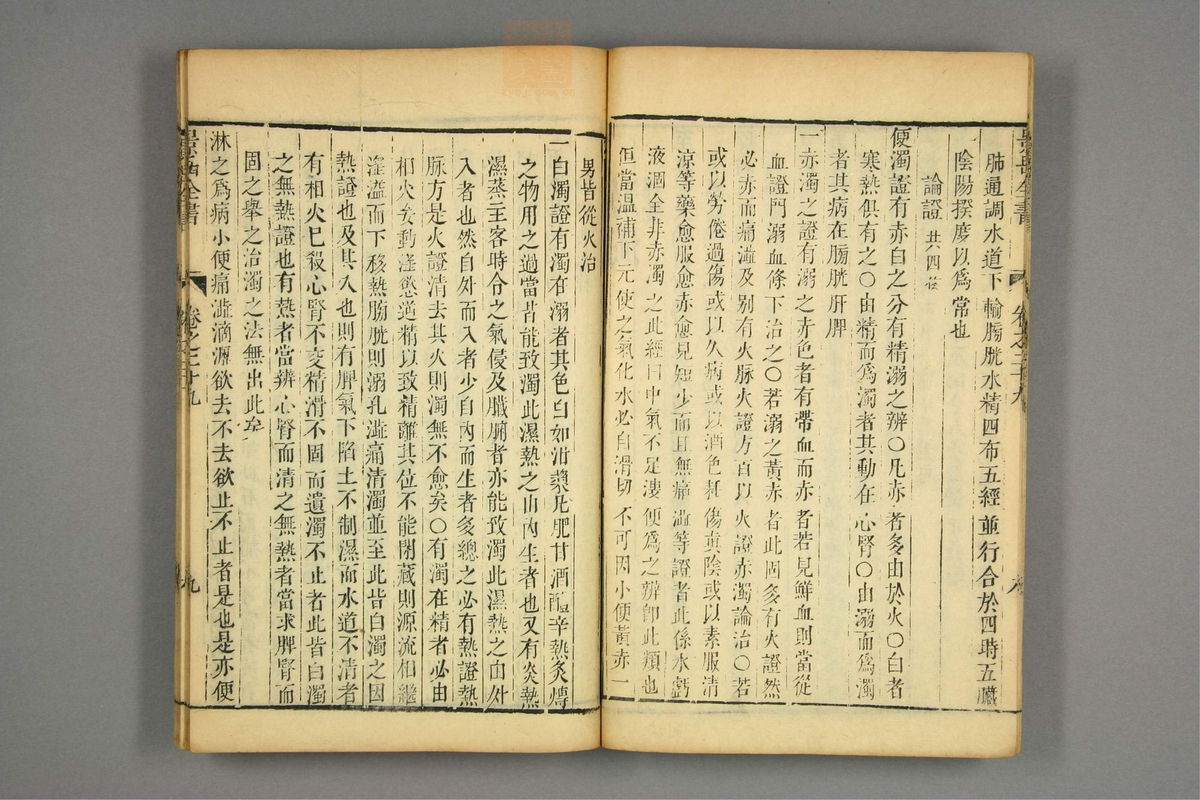 肺通調水道下輸膀胱水精四布五經並行合於四時五臟
陰陽揆度以爲常也
論證 共四條
便濁證有赤白之分有精溺之辨○凡赤者多由於火○白者
寒熱俱有之○由精而爲濁者其動在心腎○由溺而爲濁
者其病在膀胱肝脾
一赤濁之證有溺之赤色者有帶血而赤者若見鮮血則當從
血證門溺血條下治之○若溺之黃赤者此固多有火證然
必赤而痛澁及别有火脉火證方宜以火證赤濁論治○若
或以勞倦過傷或以久病或以酒色耗傷眞陰或以素服清
涼等藥愈服愈赤愈見短少而且無痛澁等證者此係水虧
液涸全非赤濁之此經曰中氣不足溲便爲之辨卽此類也
但當溫補下元使之氣化水必自清切不可因小便黃赤一
槩皆從火治
一白濁證有濁在溺者其色白如泔漿凡肥甘酒醴辛熱炙煿
之物用之過當皆能致濁此濕熱之由內生者也又有炎熱
濕蒸主客時令之氣侵及臟腑者亦能致濁此濕熱之由外
入者也然自外而入者少自內而生者多總之必有熱證熱
脉方是火證清去其火則濁無不愈矣○有濁在精者必由
相火妄動淫慾逆精以致精離其位不能閉藏則源流相繼
淫溢而下移熱膀胱則溺孔澁痛清濁並至此皆白濁之因
熱證也及其久也則有脾氣下陷土不制濕而水道不清者
有相火已殺心腎不交精滑不固而遺濁不止者此皆白濁
之無熱證也有熱者當辨心腎而清之無熱者當求脾腎而
固之舉之治濁之法無出此矣
淋之爲病小便痛澁滴瀝欲去不去欲止不止者是也是亦便
景岳全書
卷之二十九
九